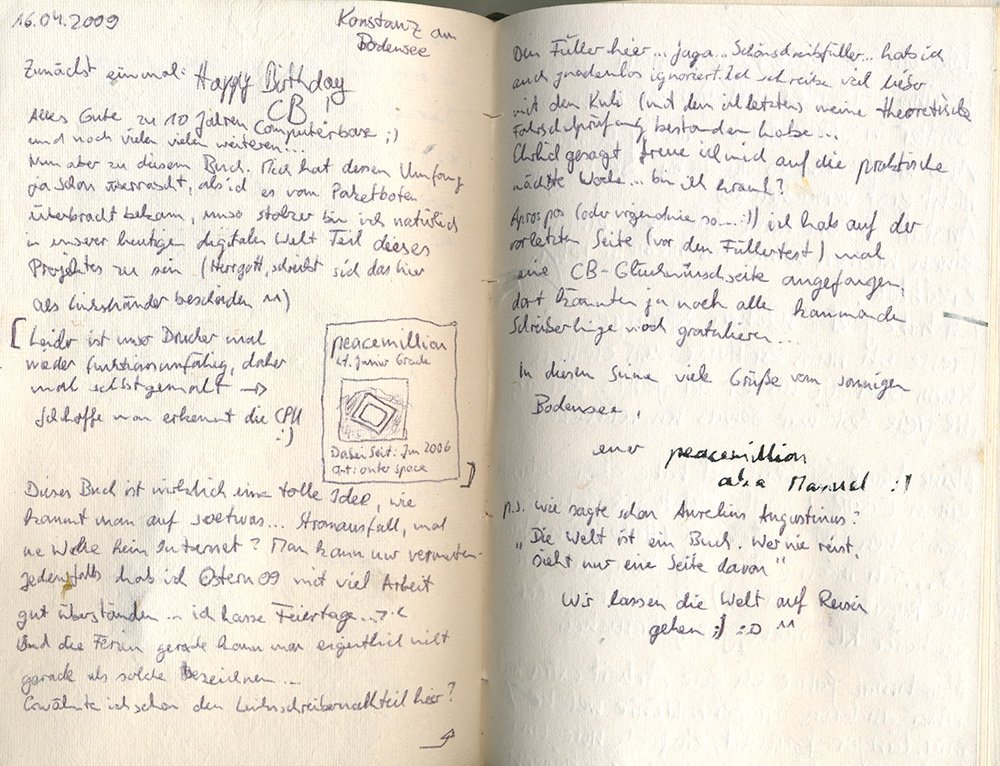 16.04.2009
Konstanz am
Bodensee
Zunächst einmal: Happy Birthday
CB!
Alles Gute zu 10 Jahren Computerbase ;)
und noch vielen vielen weiteren!...
Nun aber zu diesem Buch. Mich hat dessen Umfang
ja schon überrascht, als ich es vom Paketboten
überbracht bekam, umso stolzer bin ich natürlich
in unserer heutigen digitalen Welt Teil dieses
Projektes zu sein (Herrgott, schreibt sich das hier
als Linkshänder bescheiden ^^)
[Leider ist unser Drucker mal
wieder funktionsunfähig, daher
mal selbstgemalt →
Ich hoffe man erkennt die CPU
:)
peacemillion
Lt. Junior Grade
Dabei Seit: Jun 2006
Ort: outer space
]
Dieses Buch ist wirklich eine tolle Idee, wie
kommt man auf soetwas... Stromausfall, mal
ne Woche kein Internet? Man kann nur vermuten.
Jedenfalls hab ich Ostern 09 mit viel Arbeit
gut überstanden... ich hasse Feiertage... >.<
Und die Ferien gerade kann man eigentlich nicht
gerade als solche bezeichnen...
Erwähnte ich schon den Linksschreibernachteil hier?
Den Füller hier... jaja... Schönschreibfüller... hab ich
auch gnadenlos ignoriert. Ich schreibe viel lieber
mit dem Kuli (mit dem ich letztens meine theoretische
Fahrschulprüfung bestanden habe...
Ehrlich gesagt freue ich mich auf die praktische
nächste Woche... bin ich krank?
Apropos (oder irgendwie so...:)) ich hab auf der
vorletzten Seite (vor den Füllertest) mal
eine CB-Glückwunschseite angefangen,
dort könnten ja noch alle kommenden
Schreiberlinge noch gratulieren...
In diesem Sinne viele Grüße vom sonnigen
Bodensee,
euer peacemillion
aka Manuel :)
P.S. wie sagte schon Aurelius Augustinus?
„Die Welt ist ein Buch. Wer nie reist,
sieht nur eine Seite davon"
Wir lassen die Welt auf Reisen
gehen ;) :D ^^